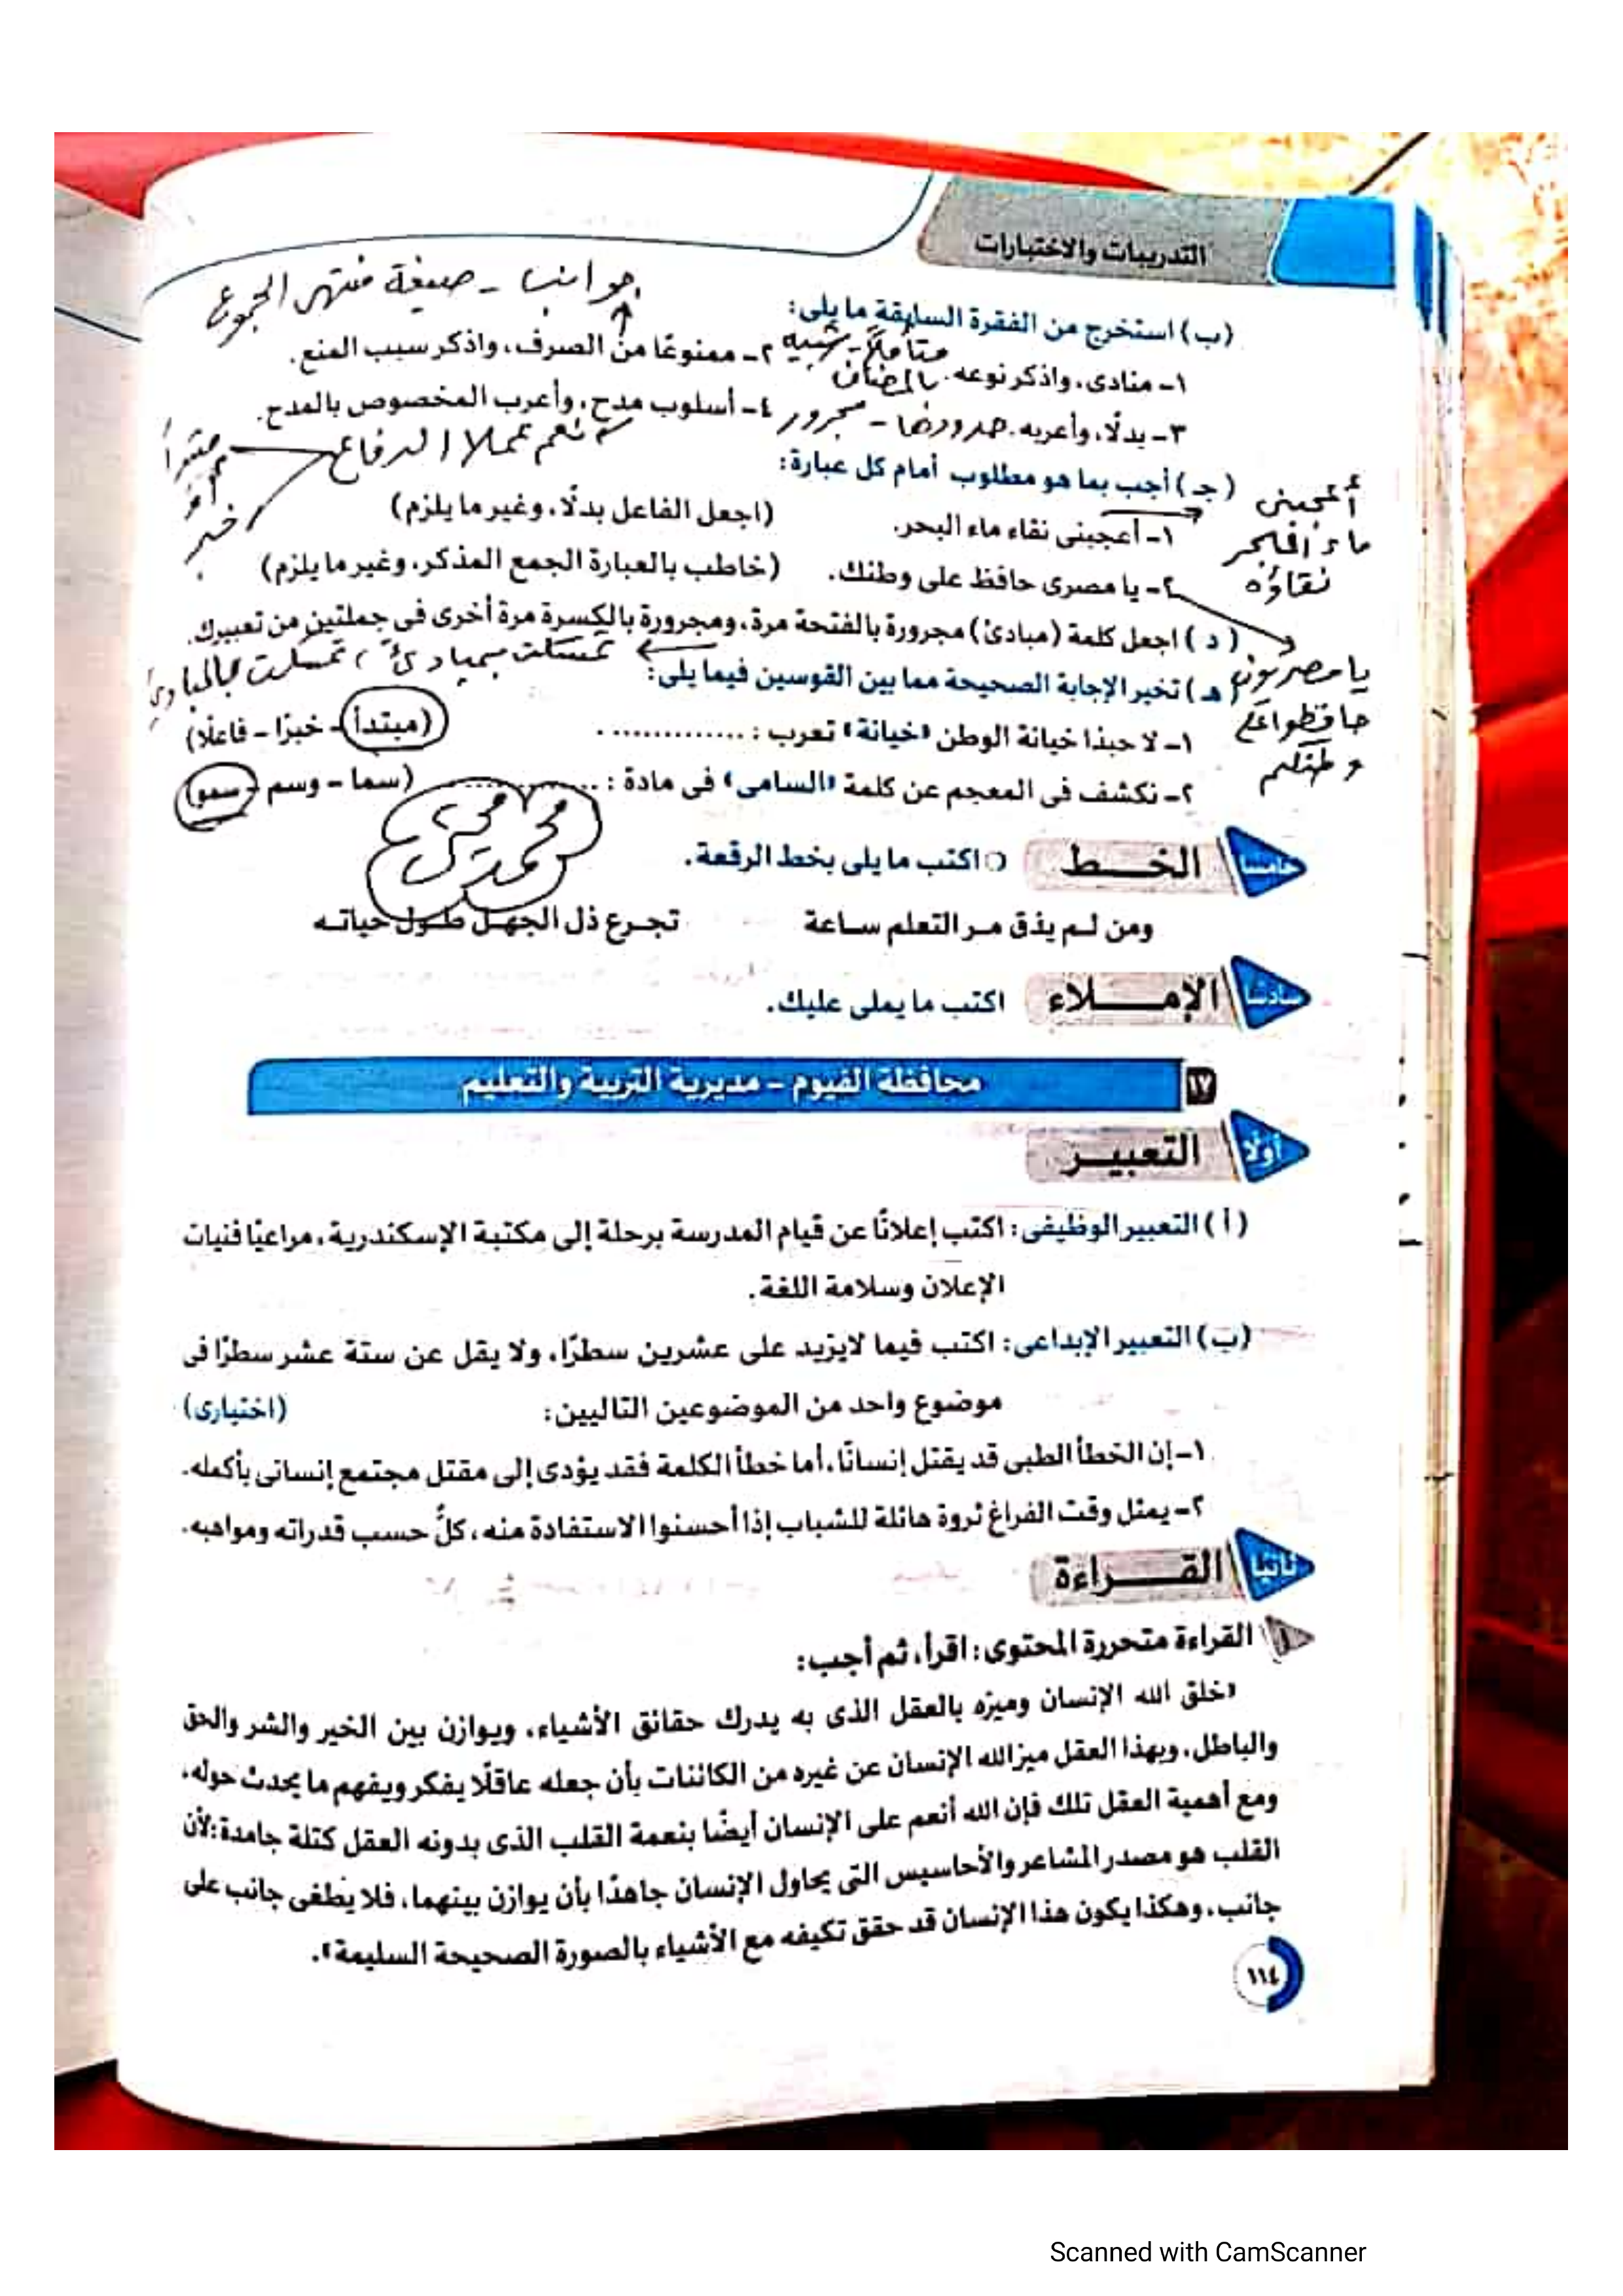 التدريبات والاختبارات
جوانب - صيغة منتهى الجموع
(ب) استخرج من الفقرة السابقة ما يلى:
١- منادى، واذكر نوعه. متأملًا - شبيه بالمضاف
٢- ممنوعًا من الصرف، واذكر سبب المنع.
٣- بدلًا، وأعربه. مجرور
٤- أسلوب مدح، وأعرب المخصوص بالمدح.
نعم عملا الدفاع
خبر
(جـ) أجب بما هو مطلوب أمام كل عبارة:
١- أعجبنى نقاء ماء البحر. (اجعل الفاعل بدلًا، وغير ما يلزم)
أعجبنى ماء البحر نقاؤه
٢- يا مصرى حافظ على وطنك. (خاطب بالعبارة الجمع المذكر، وغير ما يلزم)
يا مصريون حافظوا على وطنكم
(د) اجعل كلمة (مبادئ) مجرورة بالفتحة مرة، ومجرورة بالكسرة مرة أخرى فى جملتين من تعبيرك.
تمسكت بمبادئ، تمسكت بالمبادئ
(هـ) تخير الإجابة الصحيحة مما بين القوسين فيما يلى:
١- لا حبذا خيانة الوطن «خيانة» تعرب : ............. (مبتدأ - خبرًا - فاعلًا)
٢- نكشف فى المعجم عن كلمة «السامى» فى مادة : ............. (سما - وسم - سمو)
خامسًا الخــط
اكتب ما يلى بخط الرقعة.
ومن لـم يذق مـر التعلم سـاعة تجـرع ذل الجهـل طـول حياتـه
سادسًا الإمـــلاء اكتب ما يملى عليك.
١٧ محافظة الفيوم - مديرية التربية والتعليم
أولًا التعبيــر
(أ) التعبير الوظيفى: اكتب إعلانًا عن قيام المدرسة برحلة إلى مكتبة الإسكندرية، مراعيًا فنيات
الإعلان وسلامة اللغة.
(ب) التعبير الإبداعى: اكتب فيما لايزيد على عشرين سطرًا، ولا يقل عن ستة عشر سطرًا فى
موضوع واحد من الموضوعين التاليين: (اختيارى)
١- إن الخطأ الطبى قد يقتل إنسانًا، أما خطأ الكلمة فقد يؤدى إلى مقتل مجتمع إنسانى بأكمله.
٢- يمثل وقت الفراغ ثروة هائلة للشباب إذا أحسنوا الاستفادة منه، كلٌّ حسب قدراته ومواهبه.
ثانيًا القـــراءة
١ القراءة متحررة المحتوى: اقرأ، ثم أجب:
«خلق الله الإنسان وميزه بالعقل الذى به يدرك حقائق الأشياء، ويوازن بين الخير والشر والحق
والباطل، وبهذا العقل ميز الله الإنسان عن غيره من الكائنات بأن جعله عاقلًا يفكر ويفهم ما يحدث حوله،
ومع أهمية العقل تلك فإن الله أنعم على الإنسان أيضًا بنعمة القلب الذى بدونه العقل كتلة جامدة؛ لأن
القلب هو مصدر المشاعر والأحاسيس التى يحاول الإنسان جاهدًا بأن يوازن بينهما، فلا يطغى جانب على
جانب، وهكذا يكون هذا الإنسان قد حقق تكيفه مع الأشياء بالصورة الصحيحة السليمة».
١١٤
Scanned with CamScanner